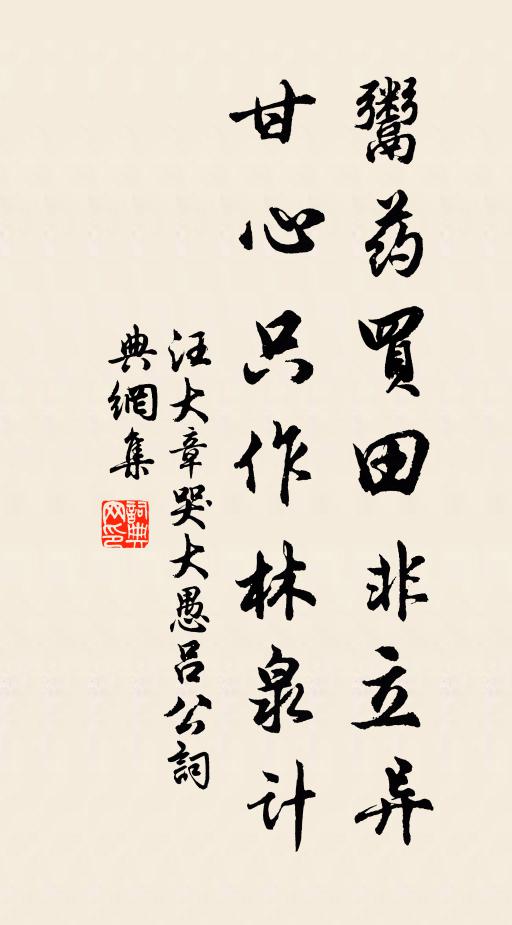 鬻药買田非立异
甘心只作林泉计
汪大章哭大愚吕公詞
典網集
詞典网印